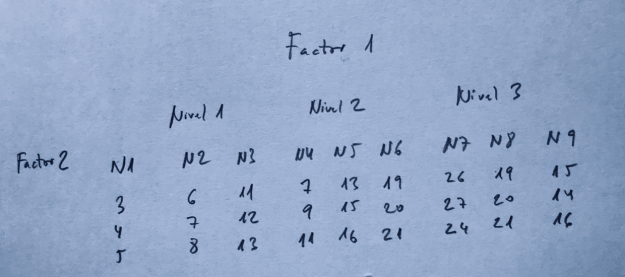 Factor 1
Nivel 1 Nivel 2 Nivel 3
Factor 2 N1 N2 N3 N4 N5 N6 N7 N8 N9
3 6 11 7 13 19 26 19 15
4 7 12 9 15 20 27 20 14
5 8 13 11 16 21 24 21 16